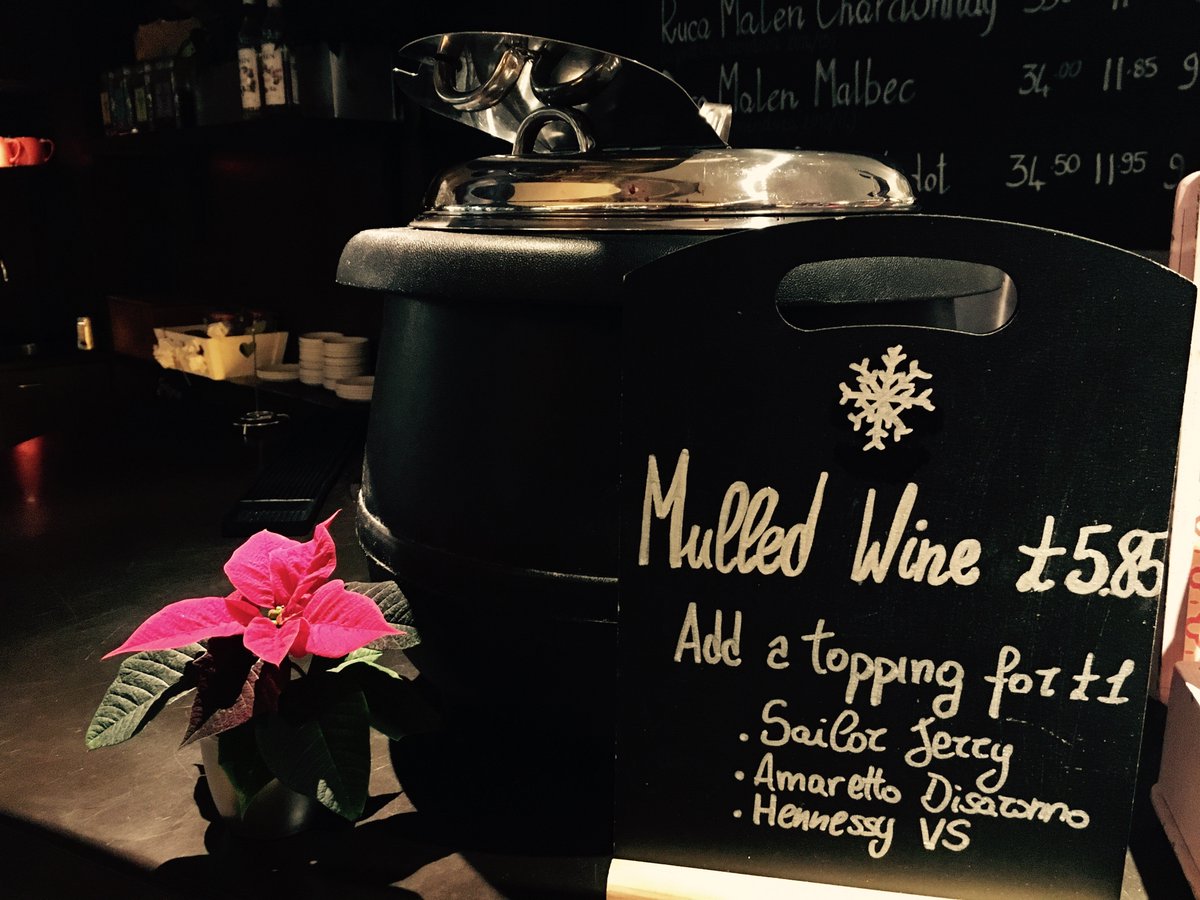 Ruca Malen Chardonnay
Malen Malbec 34.00 11.85 9
34 50 11 95 9
Mulled Wine £5.85
Add a topping for £1
• Sailor Jerry
• Amaretto Disaronno
• Hennessy VS